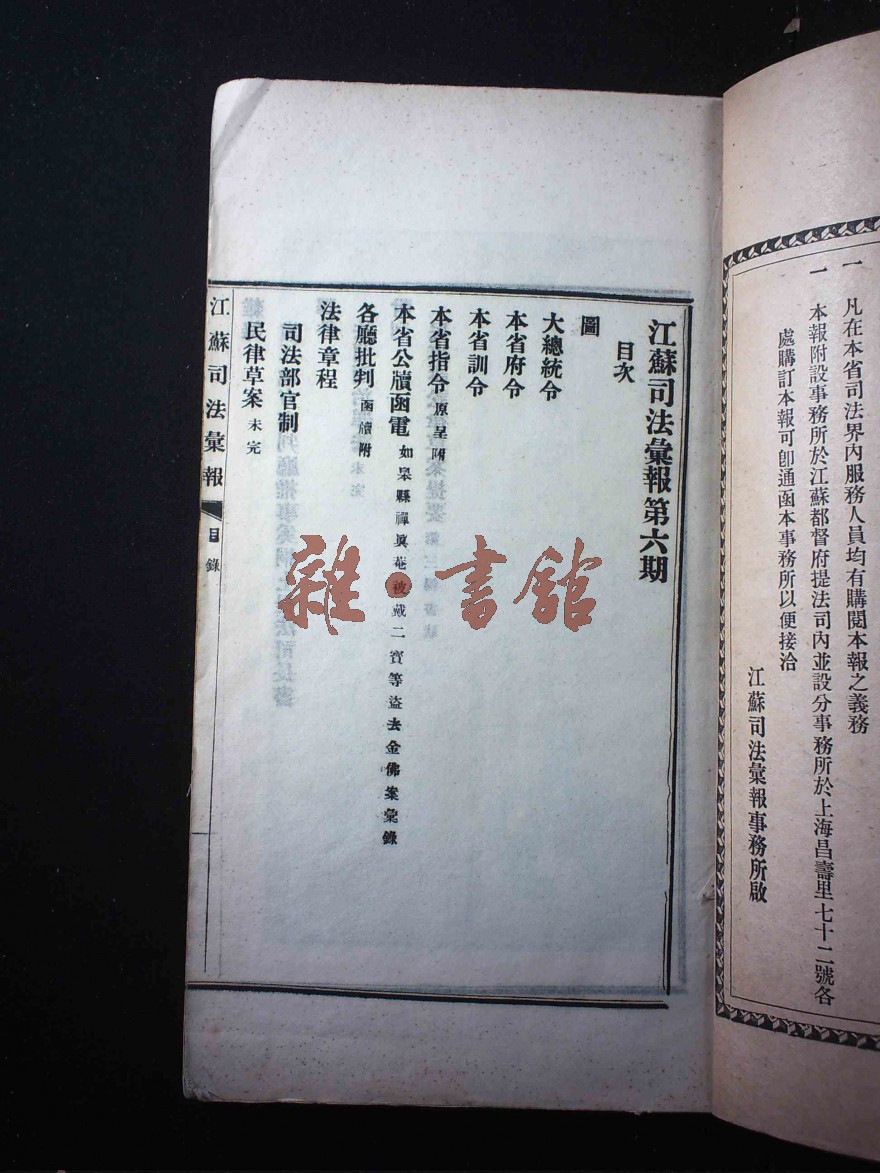 一 凡在本省司法界內服務人員均有購閱本報之義務
一 本報附設事務所於江蘇都督府提法司內並設分事務所於上海昌壽里七十二號各
處購訂本報可卽通函本事務所以便接洽
江蘇司法彙報事務所啟
江蘇司法彙報第六期
目次
圖
大總統令
本省府令
本省訓令
本省指令 原呈附
本省公牘函電 如皋縣禪眞菴被戴二賓等盜去金佛案彙錄
各廳批判 函牘附
法律章程
司法部官制
民律草案 未完
江蘇司法彙報 目錄
雜·書館